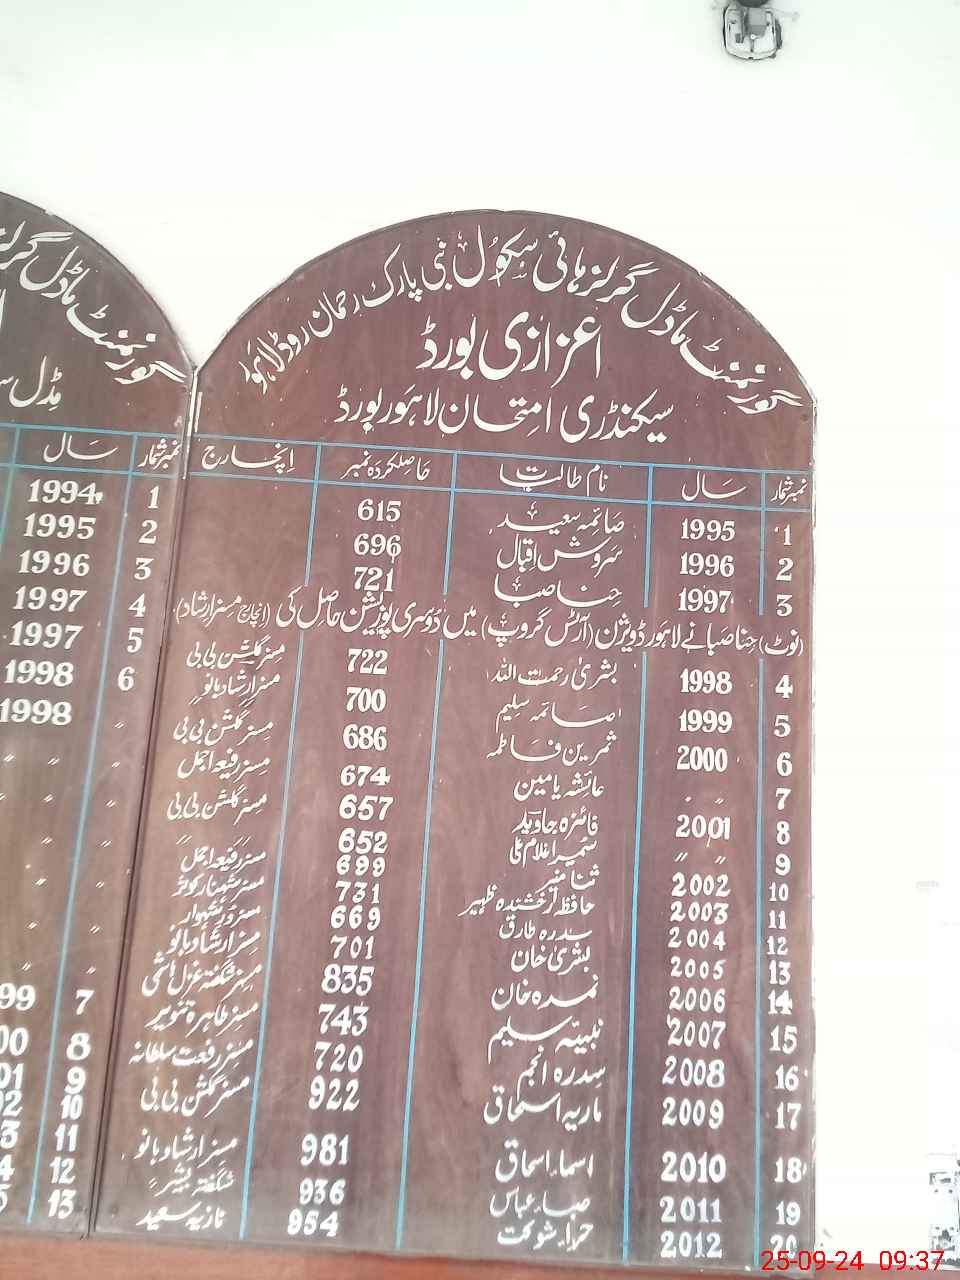 گورنمنٹ ماڈل گرلز ہائی سکول نبی پارک رحمان روڈ لاہور
اعزازی بورڈ
سیکنڈری امتحان لاہور بورڈ
نمبرشمار سال نام طالبہ حاصلکردہ نمبر انچارج
1 1995 صائمہ سعید 615
2 1996 سروش اقبال 696
3 1997 حنا صبا 721
(نوٹ) حنا صبا نے لاہور ڈویژن (آرٹس گروپ) میں دوسری پوزیشن حاصل کی (انچارج مسز ارشاد)
4 1998 بشریٰ رحمت اللہ 722 مسز گلشن بی بی
5 1999 صائمہ سلیم 700 مسز ارشاد بانو
6 2000 ثمرین فاطمہ 686 مسز گلشن بی بی
7 " " عائشہ یامین 674 مسز رفیعہ اجمل
8 2001 فائزہ جاوید 657 مسز گلشن بی بی
9 " " سمیرا غلام علی 652 " "
10 2002 ثنا منیر 699 مسز رفیعہ اجمل
11 2003 حافظہ رخشندہ ظہیر 731 مسز شہناز کوثر
12 2004 سدرہ طارق 669 مسز
13 2005 بشریٰ خان 701 مسز ارشاد بانو
14 2006 نمدہ خان 835 مسز شگفتہ غزل ہاشمی
15 2007 نبیتہ سلیم 743 مسز طاہرہ تنویر
16 2008 سدرہ انجم 720 مسز رفعت سلطانہ
17 2009 ماریہ اسحاق 922 مسز گلشن بی بی
18 2010 اسماء اسحاق 981 مسز ارشاد بانو
19 2011 صباء عباس 936 شگفتہ بشیر
20 2012 حراء شوکت 954 نازیہ سعید
گورنمنٹ ماڈل گرلز
مڈل
نمبرشمار سال
1 1994
2 1995
3 1996
4 1997
5 1997
6 1998
1998
7 99
8 00
9 01
10 02
11 3
12 4
13 5
25-09-24 09:37